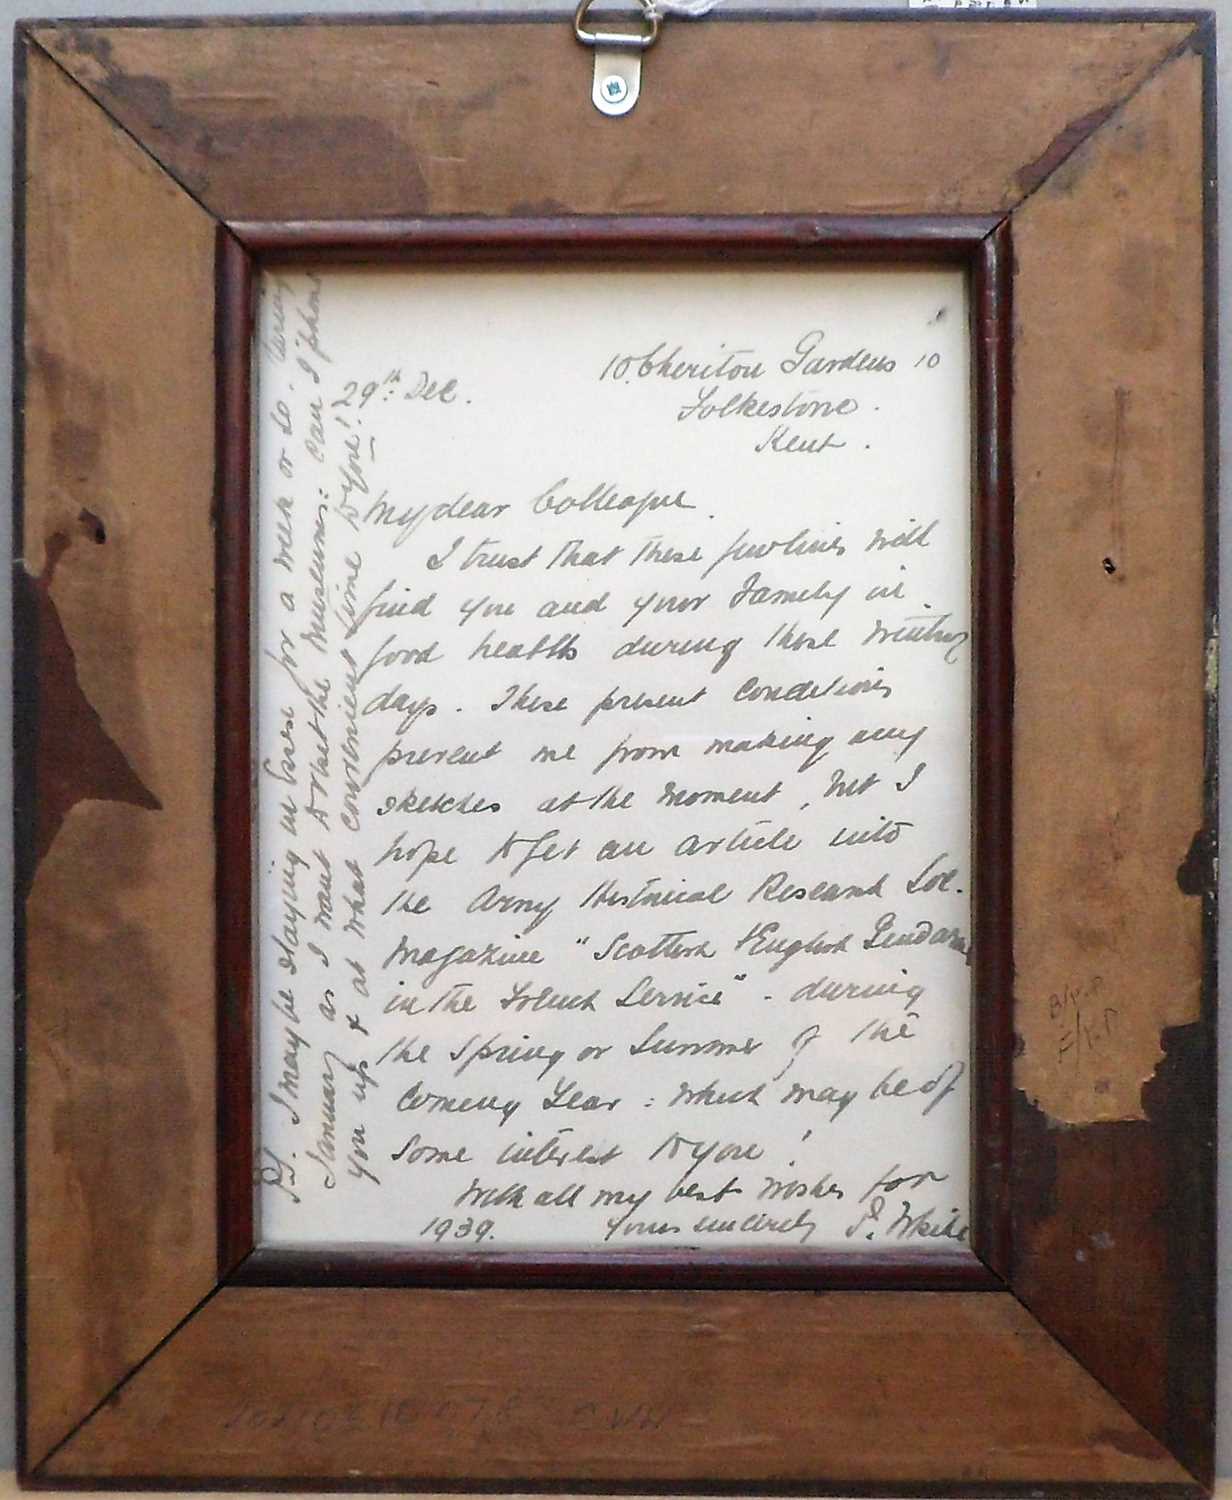 10. Cheriton Gardens 10
Folkestone.
Kent.
29th Dec.
My dear Colleague.
I trust that these few lines will
find you and your Family in
good health during these wintry
days. These present conditions
prevent me from making any
sketches at the moment, but I
hope to get an article into
the Army Historical Research Soc.
Magazine "Scottish & English Gendarme
in the French Service" - during
the Spring or Summer of the
Coming Year: which may be of
some interest to you!
With all my best wishes for
1939. Yours sincerely P. White
PS. I may be staying in for a week or so. during
January as I want to visit the Museums: Can I 'phone
you up & at what convenient time to you!?